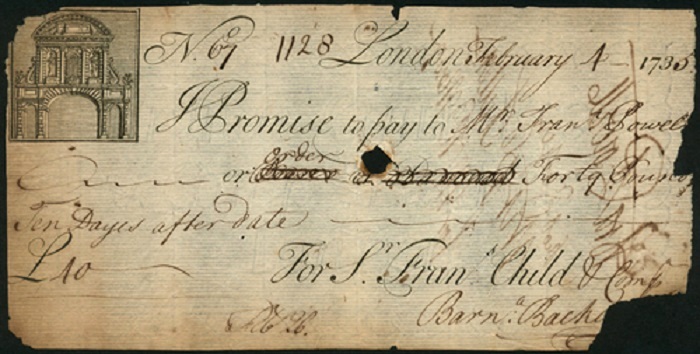 No. 67 1128 London February 4 1735
I Promise to pay to Mr. Fran.s Powel
order
or at Forty Pounds
Ten Dayes after date
£40 For S.r Fran.s Child & Comp
Barn.a Backw